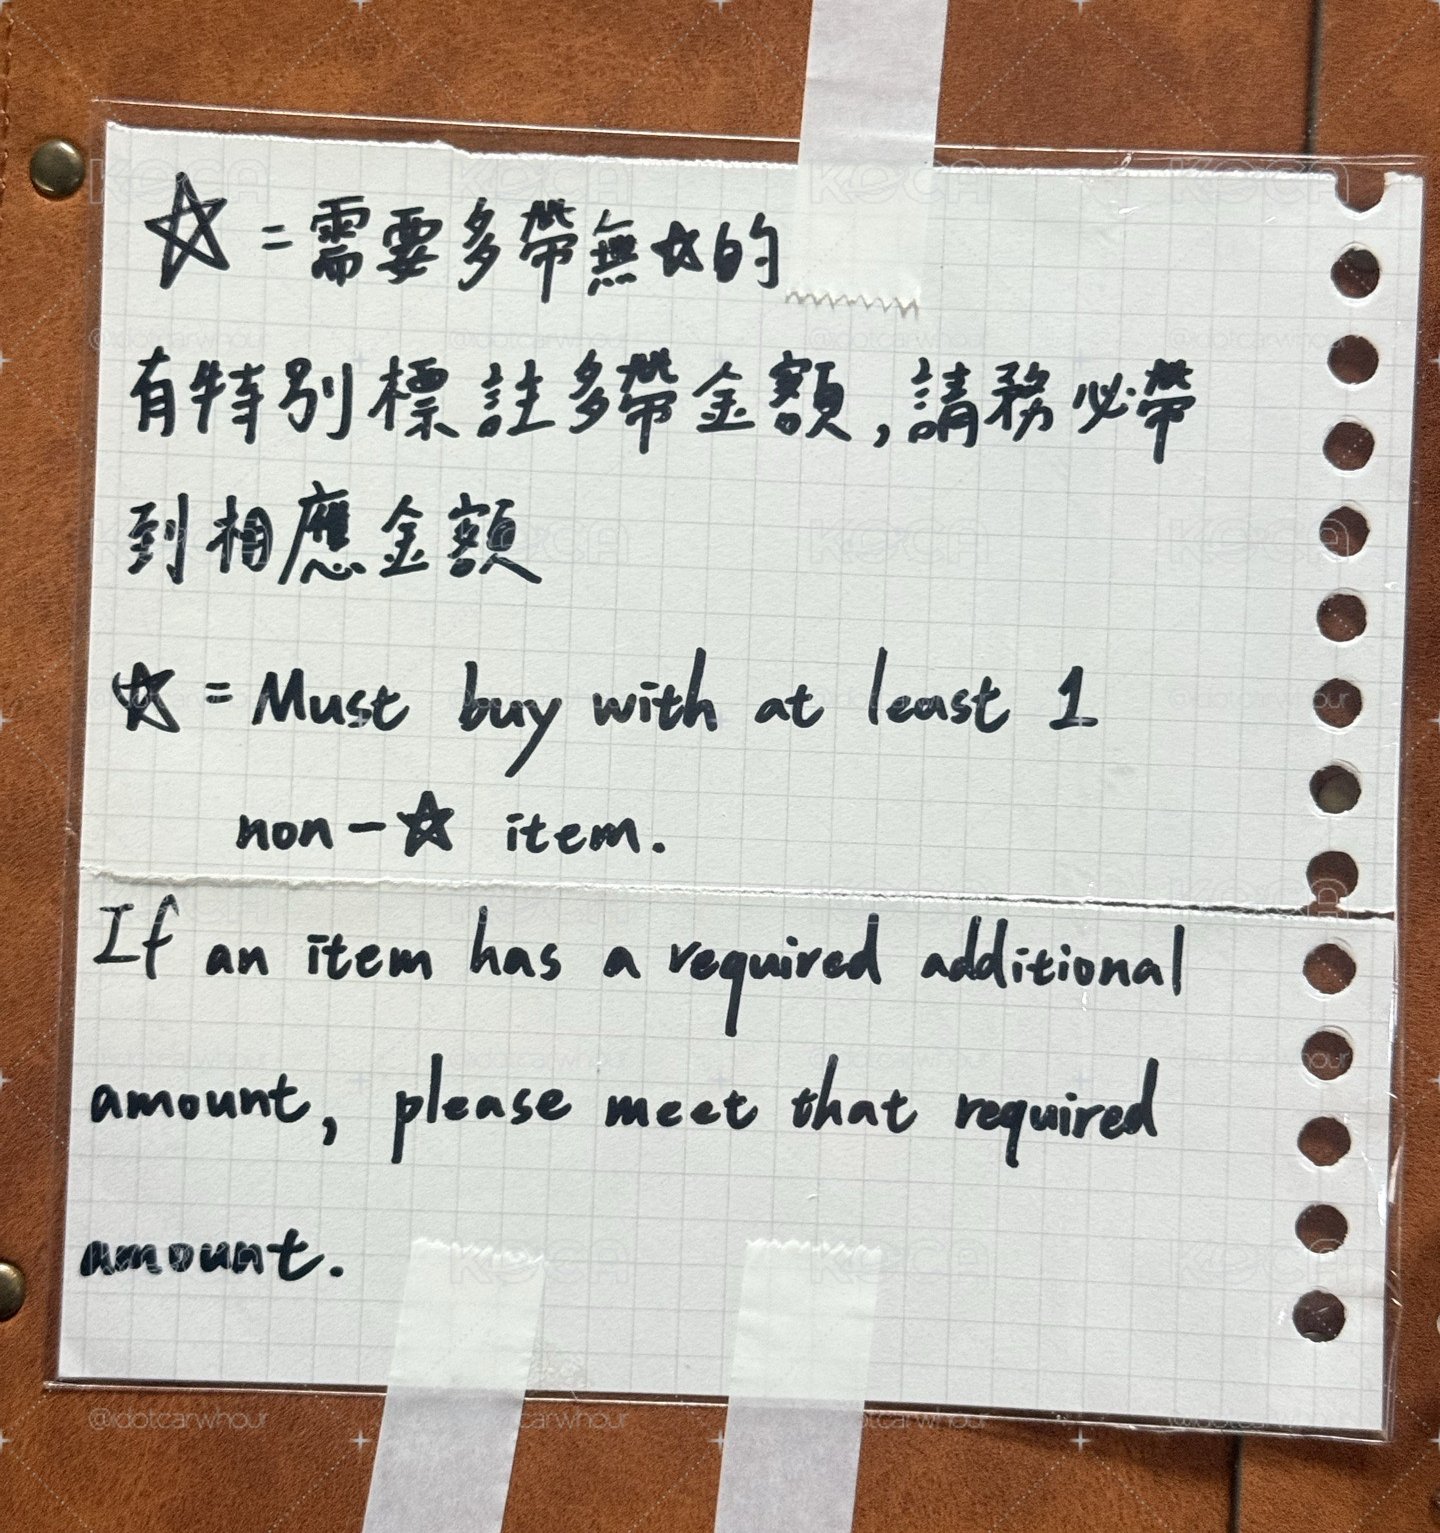 ☆=需要多帶無☆的
有特別標註多帶金額,請務必帶
到相應金額
☆=Must buy with at least 1
non-☆ item.
If an item has a required additional
amount, please meet that required
amount.
KOCA
@idotcarwhour